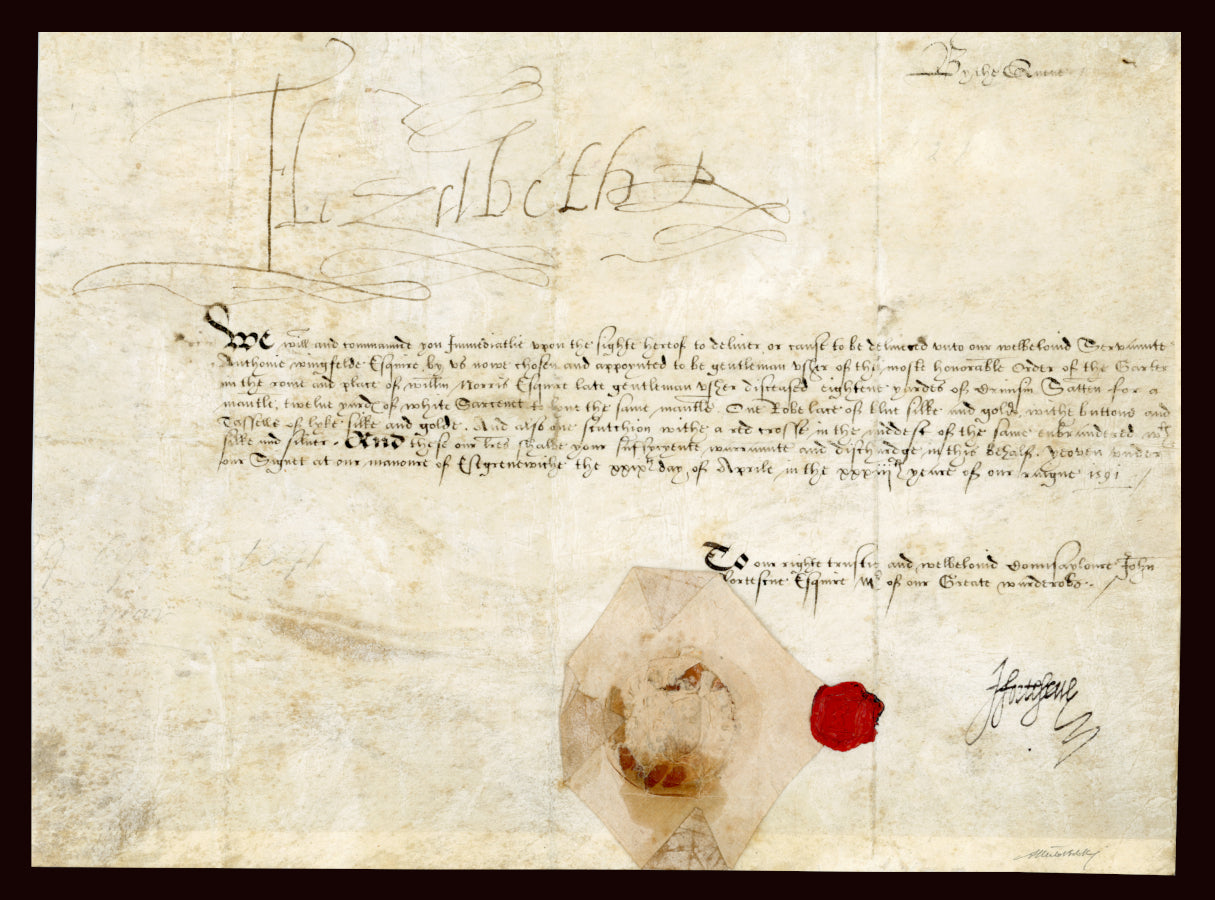 By the Quene
Elizabeth R
We will and commaunde you Immediatlie upon the sighte hereof to deliver or cause to be delivered unto our welbelovid Servaunte
Anthonie wingfelde Esquire, by us nowe chosen and appoynted to be gentleman ussher of the moste honorable Order of the Garter
in the rome and place of willm Norris Esquire late gentleman ussher disceased eightene yardes of Crimsin Satten for a
mantle, twelve yardes of white Sarcenet to line the same mantle. One Robe lace of blue silke and golde, withe buttons and
Tasselle of lyke silke and golde. And also one scutchion withe a red crosse in the middest of the same enbrauderid wth
silke and silver. And these our lres shalbe your sufficyente warraunte and dischardge in this behalf. yeoven under
our Signet at our manoure of Estgrenewiche the xxixth day of Aprile in the xxxiijth yeare of our raigne 1591
To our righte trustie and welbelovid Counsayloure John
Fortescue Esquire Mr of our Greate warderobe.
J Fortescue